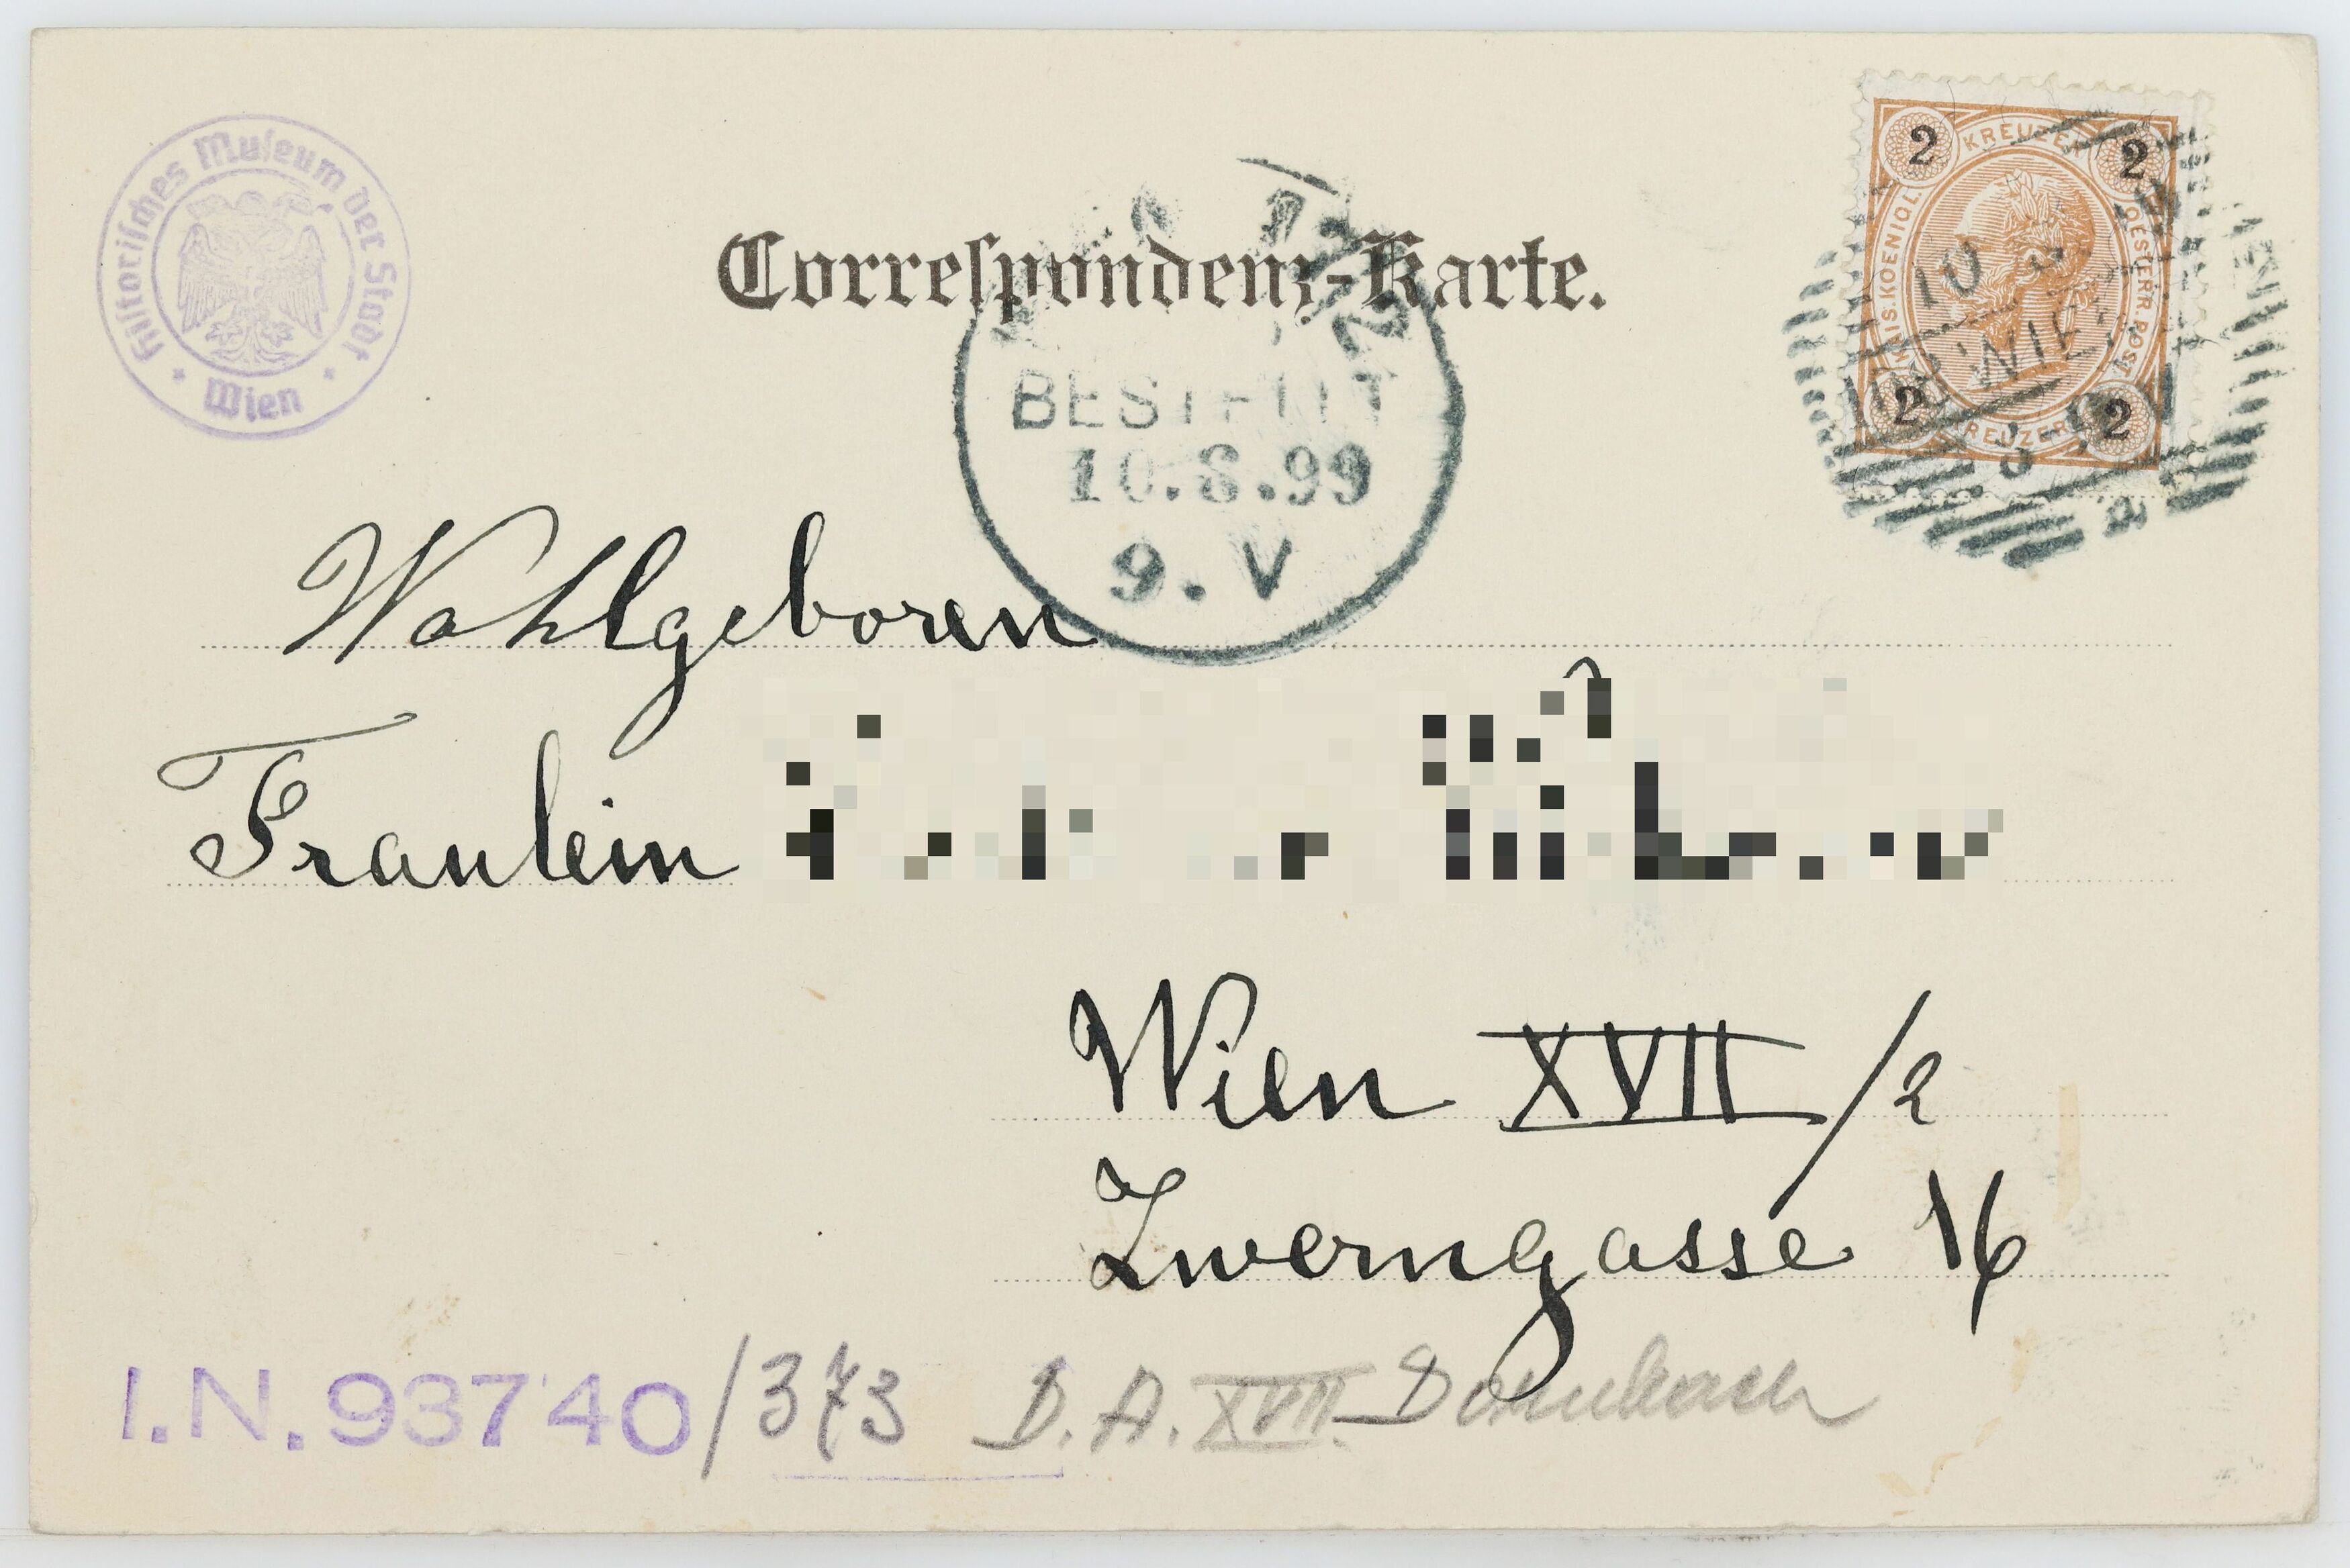 Historisches Museum der Stadt
Wien
Correspondenz-Karte.
2 KREUZER 2
KAIS. KOENIGL. OESTERR. POST
2 KREUZER 2
10
WIEN
BESTELLT
10.8.99
9. V
Wohlgeboren
Fraulein
Wien XVII/2
Zwerngasse 16
I.N. 93740/373 D.A. XVII. Dornbach